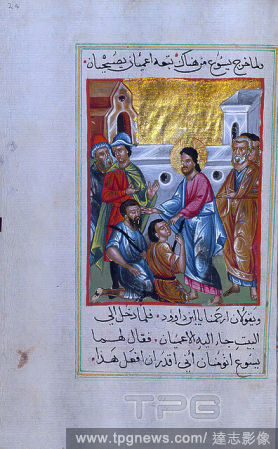 24
ولما خرج يسوع من هناك تبعه اعميان يصيحان
ويقولان ارحمنا يا ابن داوود، فلما دخل الى
البيت جا اليه الاعميان، فقال لهما
يسوع اتومنان أني أقدر ان افعل هذا
TPG
www.tpgnews.com/ 達志影像